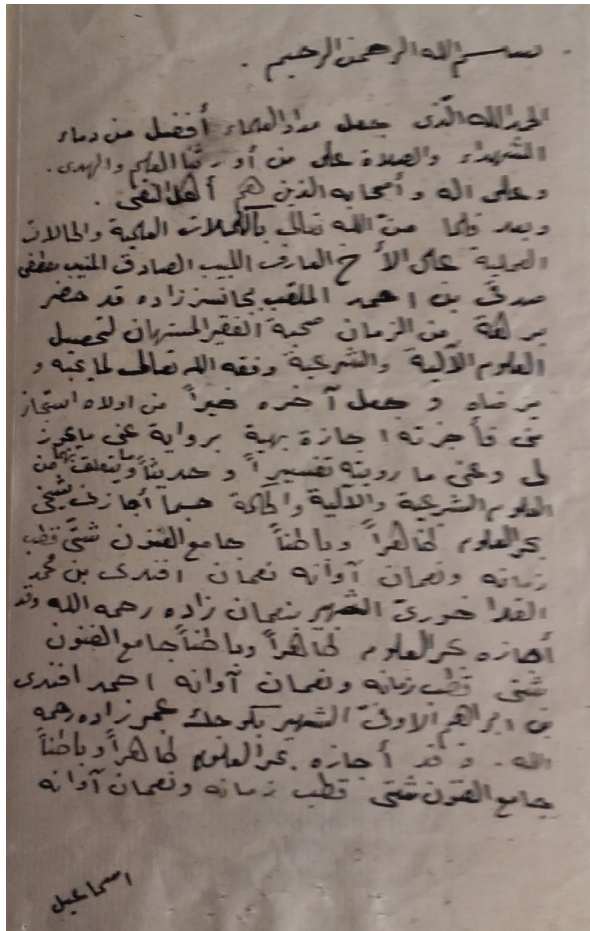 بسم الله الرحمن الرحيم .
الحمد لله الذى جعل مداد العلماء أفضل من دماء
الشهداء والصلاة على من أو العلم والهدى .
وعلى اله وأصحابه الذين هم أهل التقى .
وبعد فلما منّ الله تعالى بالكملات العلمية والحالات
العملية على الأخ العارف اللبيب الصادق المنيب مصطفى
صدقى بن احمد الملقب زاده قد حضر
برهة من الزمان صحبة الفقير المستهان لتحصيل
العلوم الآلية والشرعية وفقه الله تعالى لما يحبه و
يرضاه وجعل آخره خيراً من اولاه استجاز
نى فأجزته اجازة بهية برواية عنى ما يجوز
لى وعنى ما رويته تفسيراً وحديثاً وما يتعلق بهما من
العلوم الشرعية والآلية والحكمة حسبما أجازنى شيخى
بحر العلوم ظاهراً وباطناً جامع الفنون شتى قطب
زمانه ونعمان آوانه نعمان افندى بن محمد
الشهير بنعمان زاده رحمه الله وقد
أجازه بحر العلوم ظاهراً وباطناً جامع الفنون
شتى قطب زمانه ونعمان آوانه احمد افندى
بن ابراهم الاوفى الشهير بكوجك عمر زاده رحمه
الله . وقد أجازه بحر العلوم ظاهراً وباطناً
جامع الفنون شتى قطب زمانه ونعمان آوانه
اسماعيل